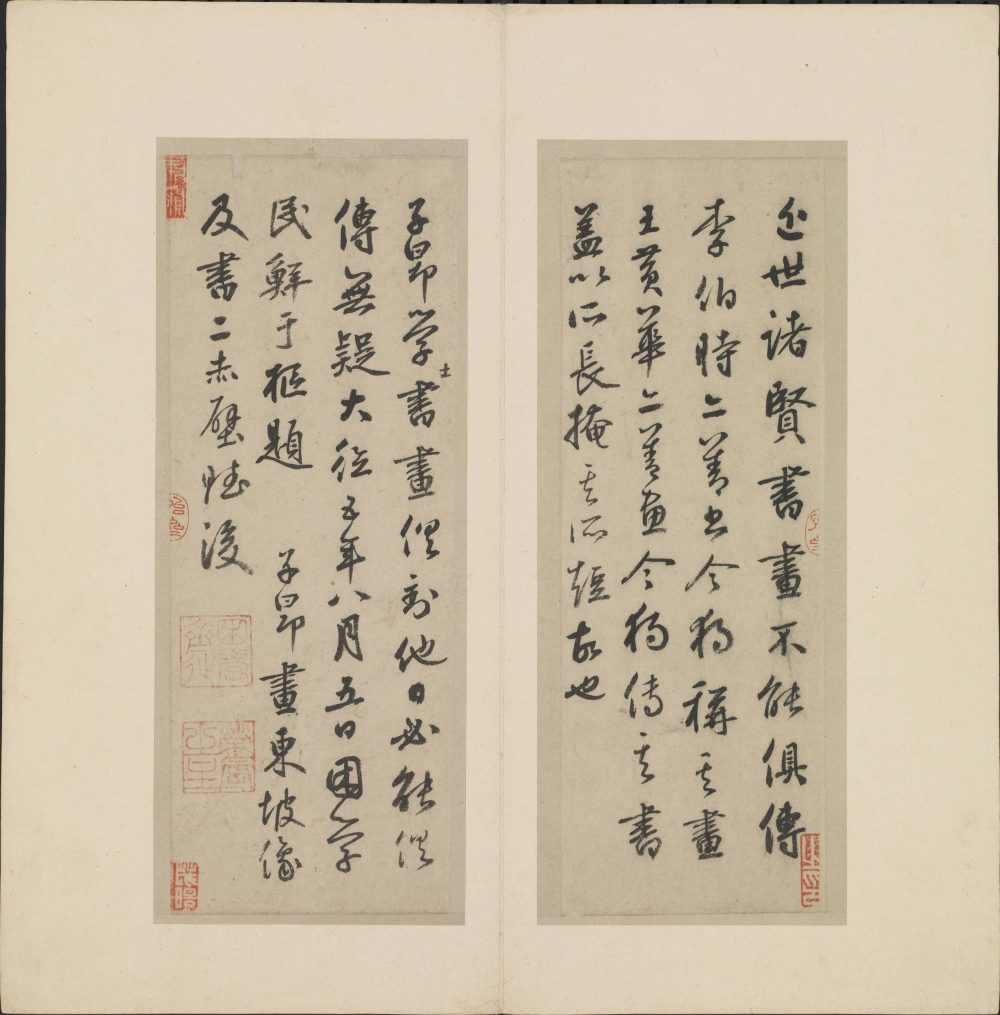 近世諸賢書畫不能俱傳
李伯時亦善書今獨稱其畫
王黃華亦善畫今獨傳其書
蓋以所長掩其所短故也
子昂學士書畫俱到他日必能俱
傳無疑大德五年八月五日困學
民鮮于樞題　子昂畫東坡像
及書二赤壁賦後